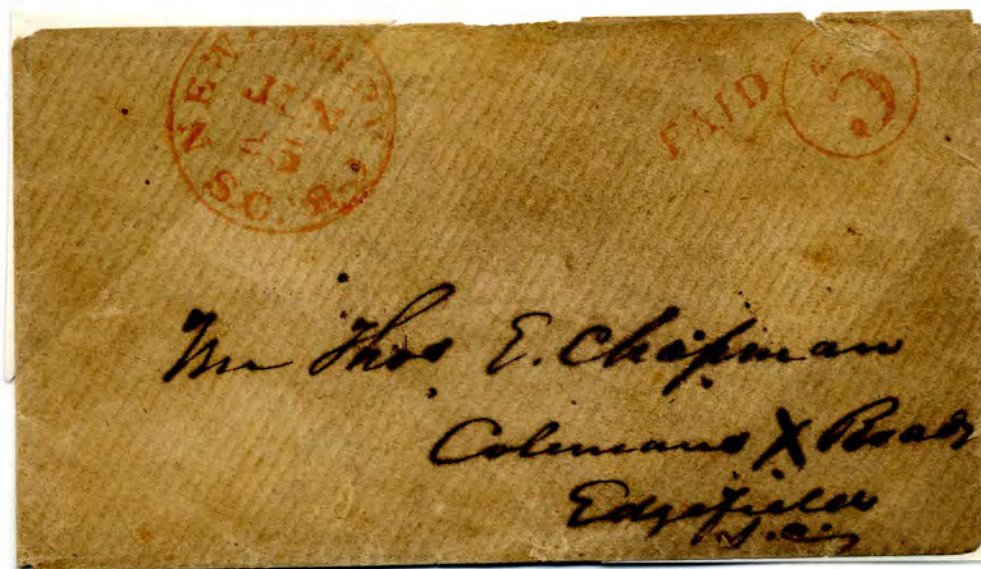 NEWBERRY
S.C.
PAID
Mr Thos E. Chapman
Colemans X Roads
Edgefield
S.C.